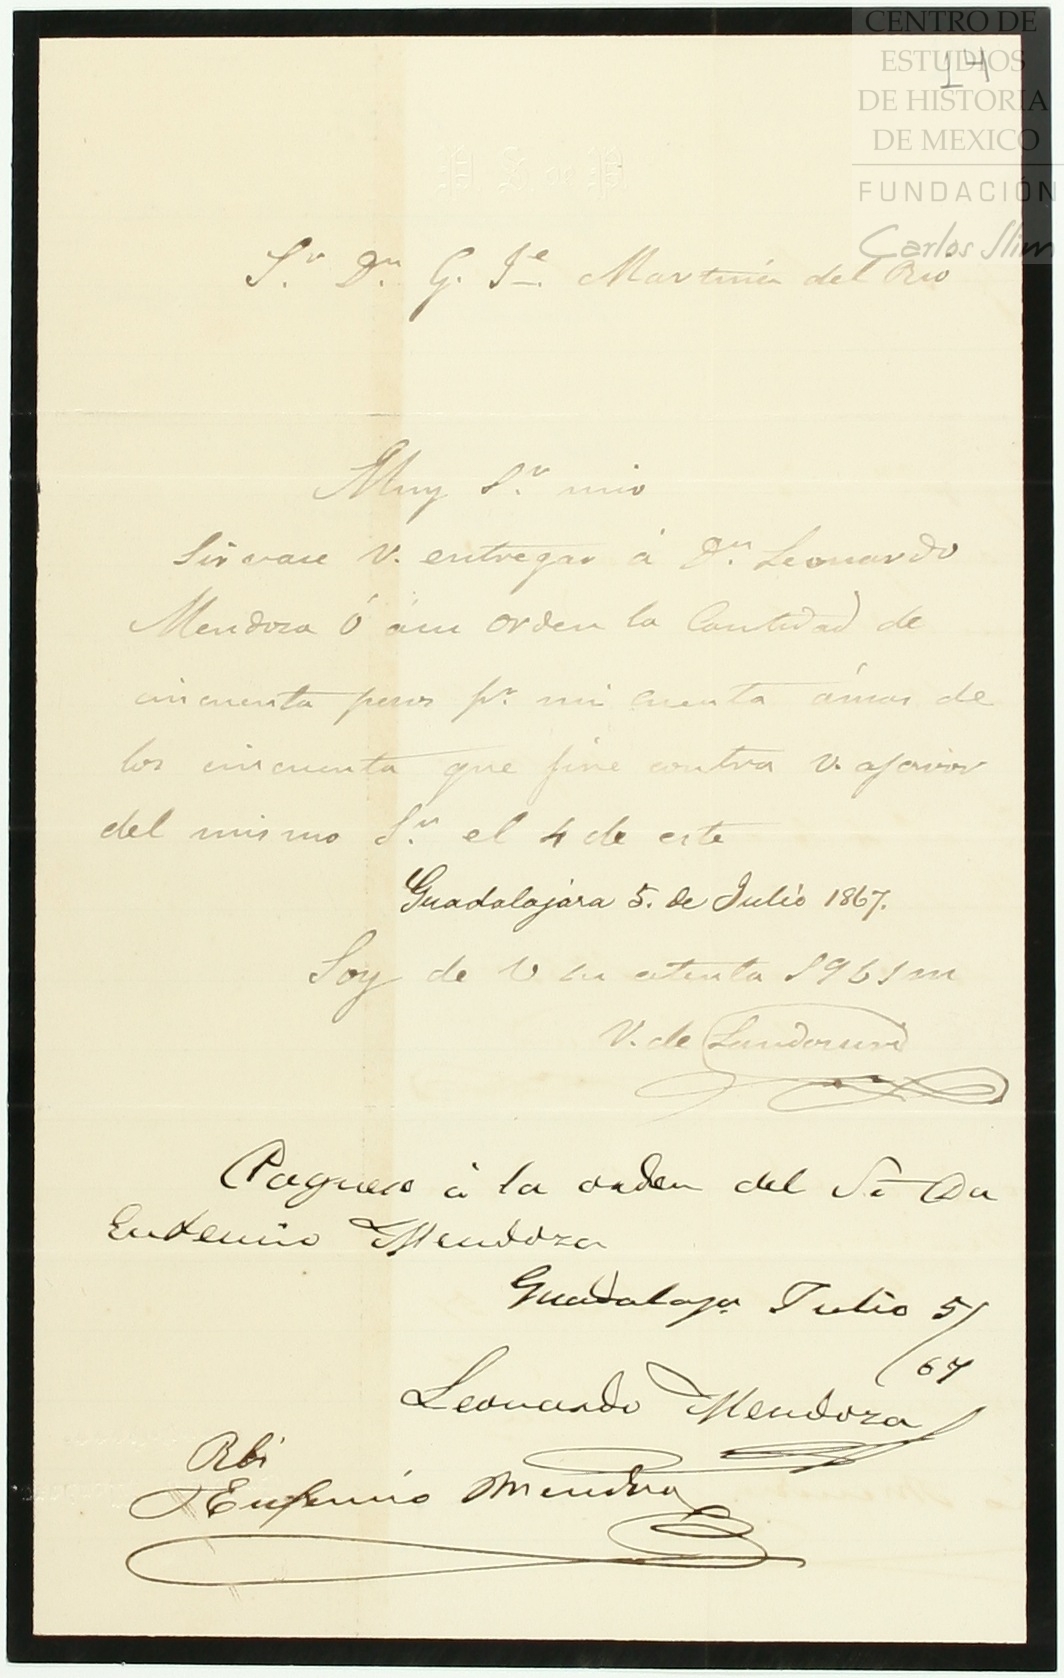 CENTRO DE
ESTUDIOS
DE HISTORIA
DE MEXICO
FUNDACIÓN
Carlos Slim
14
Sr. Dn. G. Je. Martinez del Rio
Muy Sr. mio
Sirvase V. entregar á Dn. Leonardo
Mendoza ó ásu orden la Cantidad de
cincuenta pesos pr. mi cuenta ámas de
los cincuenta que jiré contra V. afavor
del mismo Sr. el 4 de este
Guadalajara 5. de Julio 1867.
Soy de V su atenta
V. de
Paguese á la orden del Sr Dn
Eufemio Mendoza
Guadalaja. Julio 5/
/67
Leonardo Mendoza
Rbi
Eufemio Mendoza